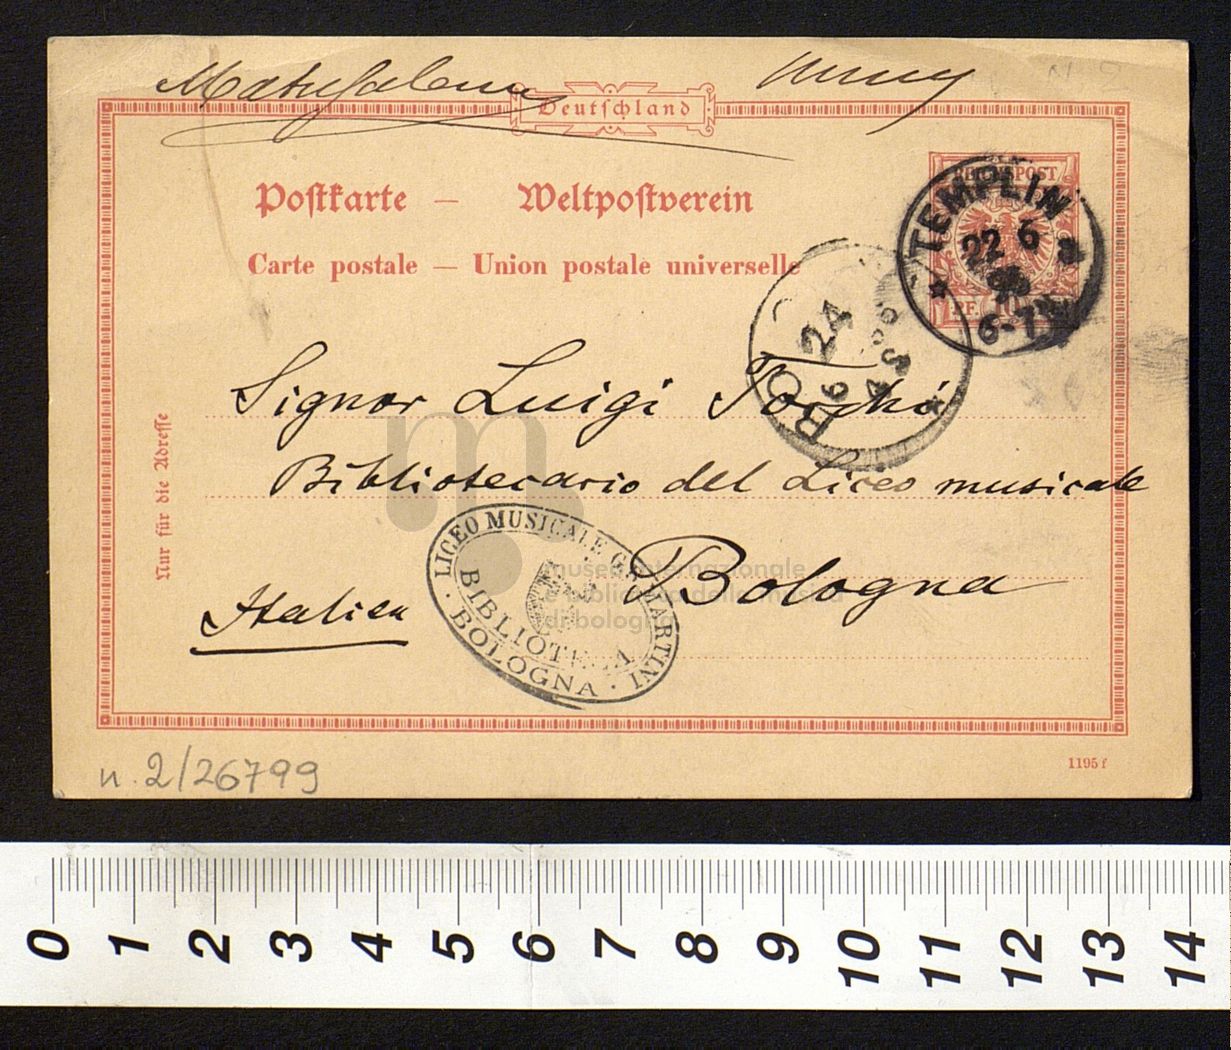 Deutschland
Postkarte — Weltpostverein
Carte postale — Union postale universelle
REICHSPOST
PF. 10
TEMPLIN
22 6
6-7N
24
6
4 S
BO
Signor Luigi Torchi
Bibliotecario del Liceo musicale
Bologna
Italien
Nur für die Adresse
LICEO MUSICALE G. MARTINI
BIBLIOTECA
BOLOGNA
museo internazionale
e biblioteca della musica
di bologna
n. 2/26799
1195 f
0 1 2 3 4 5 6 7 8 9 10 11 12 13 14